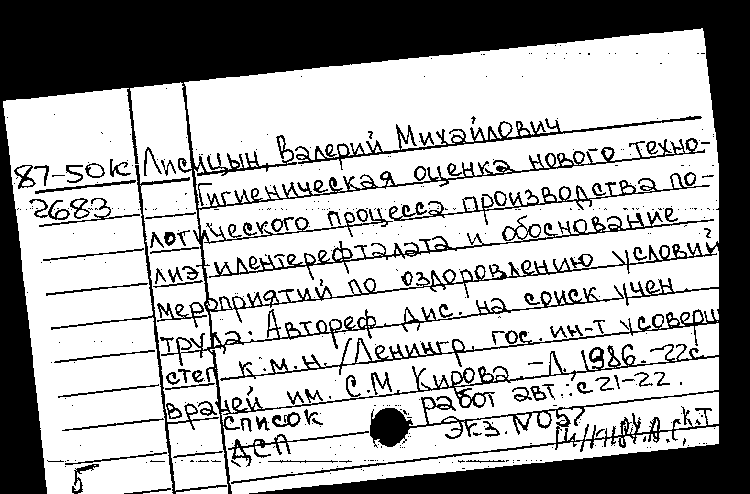 87-50к Лисицын, Валерий Михайлович
2683 Гигиеническая оценка нового техно-
логического процесса производства по-
лиэтилентерефталата и обоснование
мероприятий по оздоровлению условий
труда: Автореф. дис. на соиск учен.
степ к.м.н. /Ленингр. гос. ин-т усоверш
врачей им. С.М. Кирова. -Л, 1986. -22с.
список работ авт.: с 21-22.
ДСП Экз. №057
к.т
5